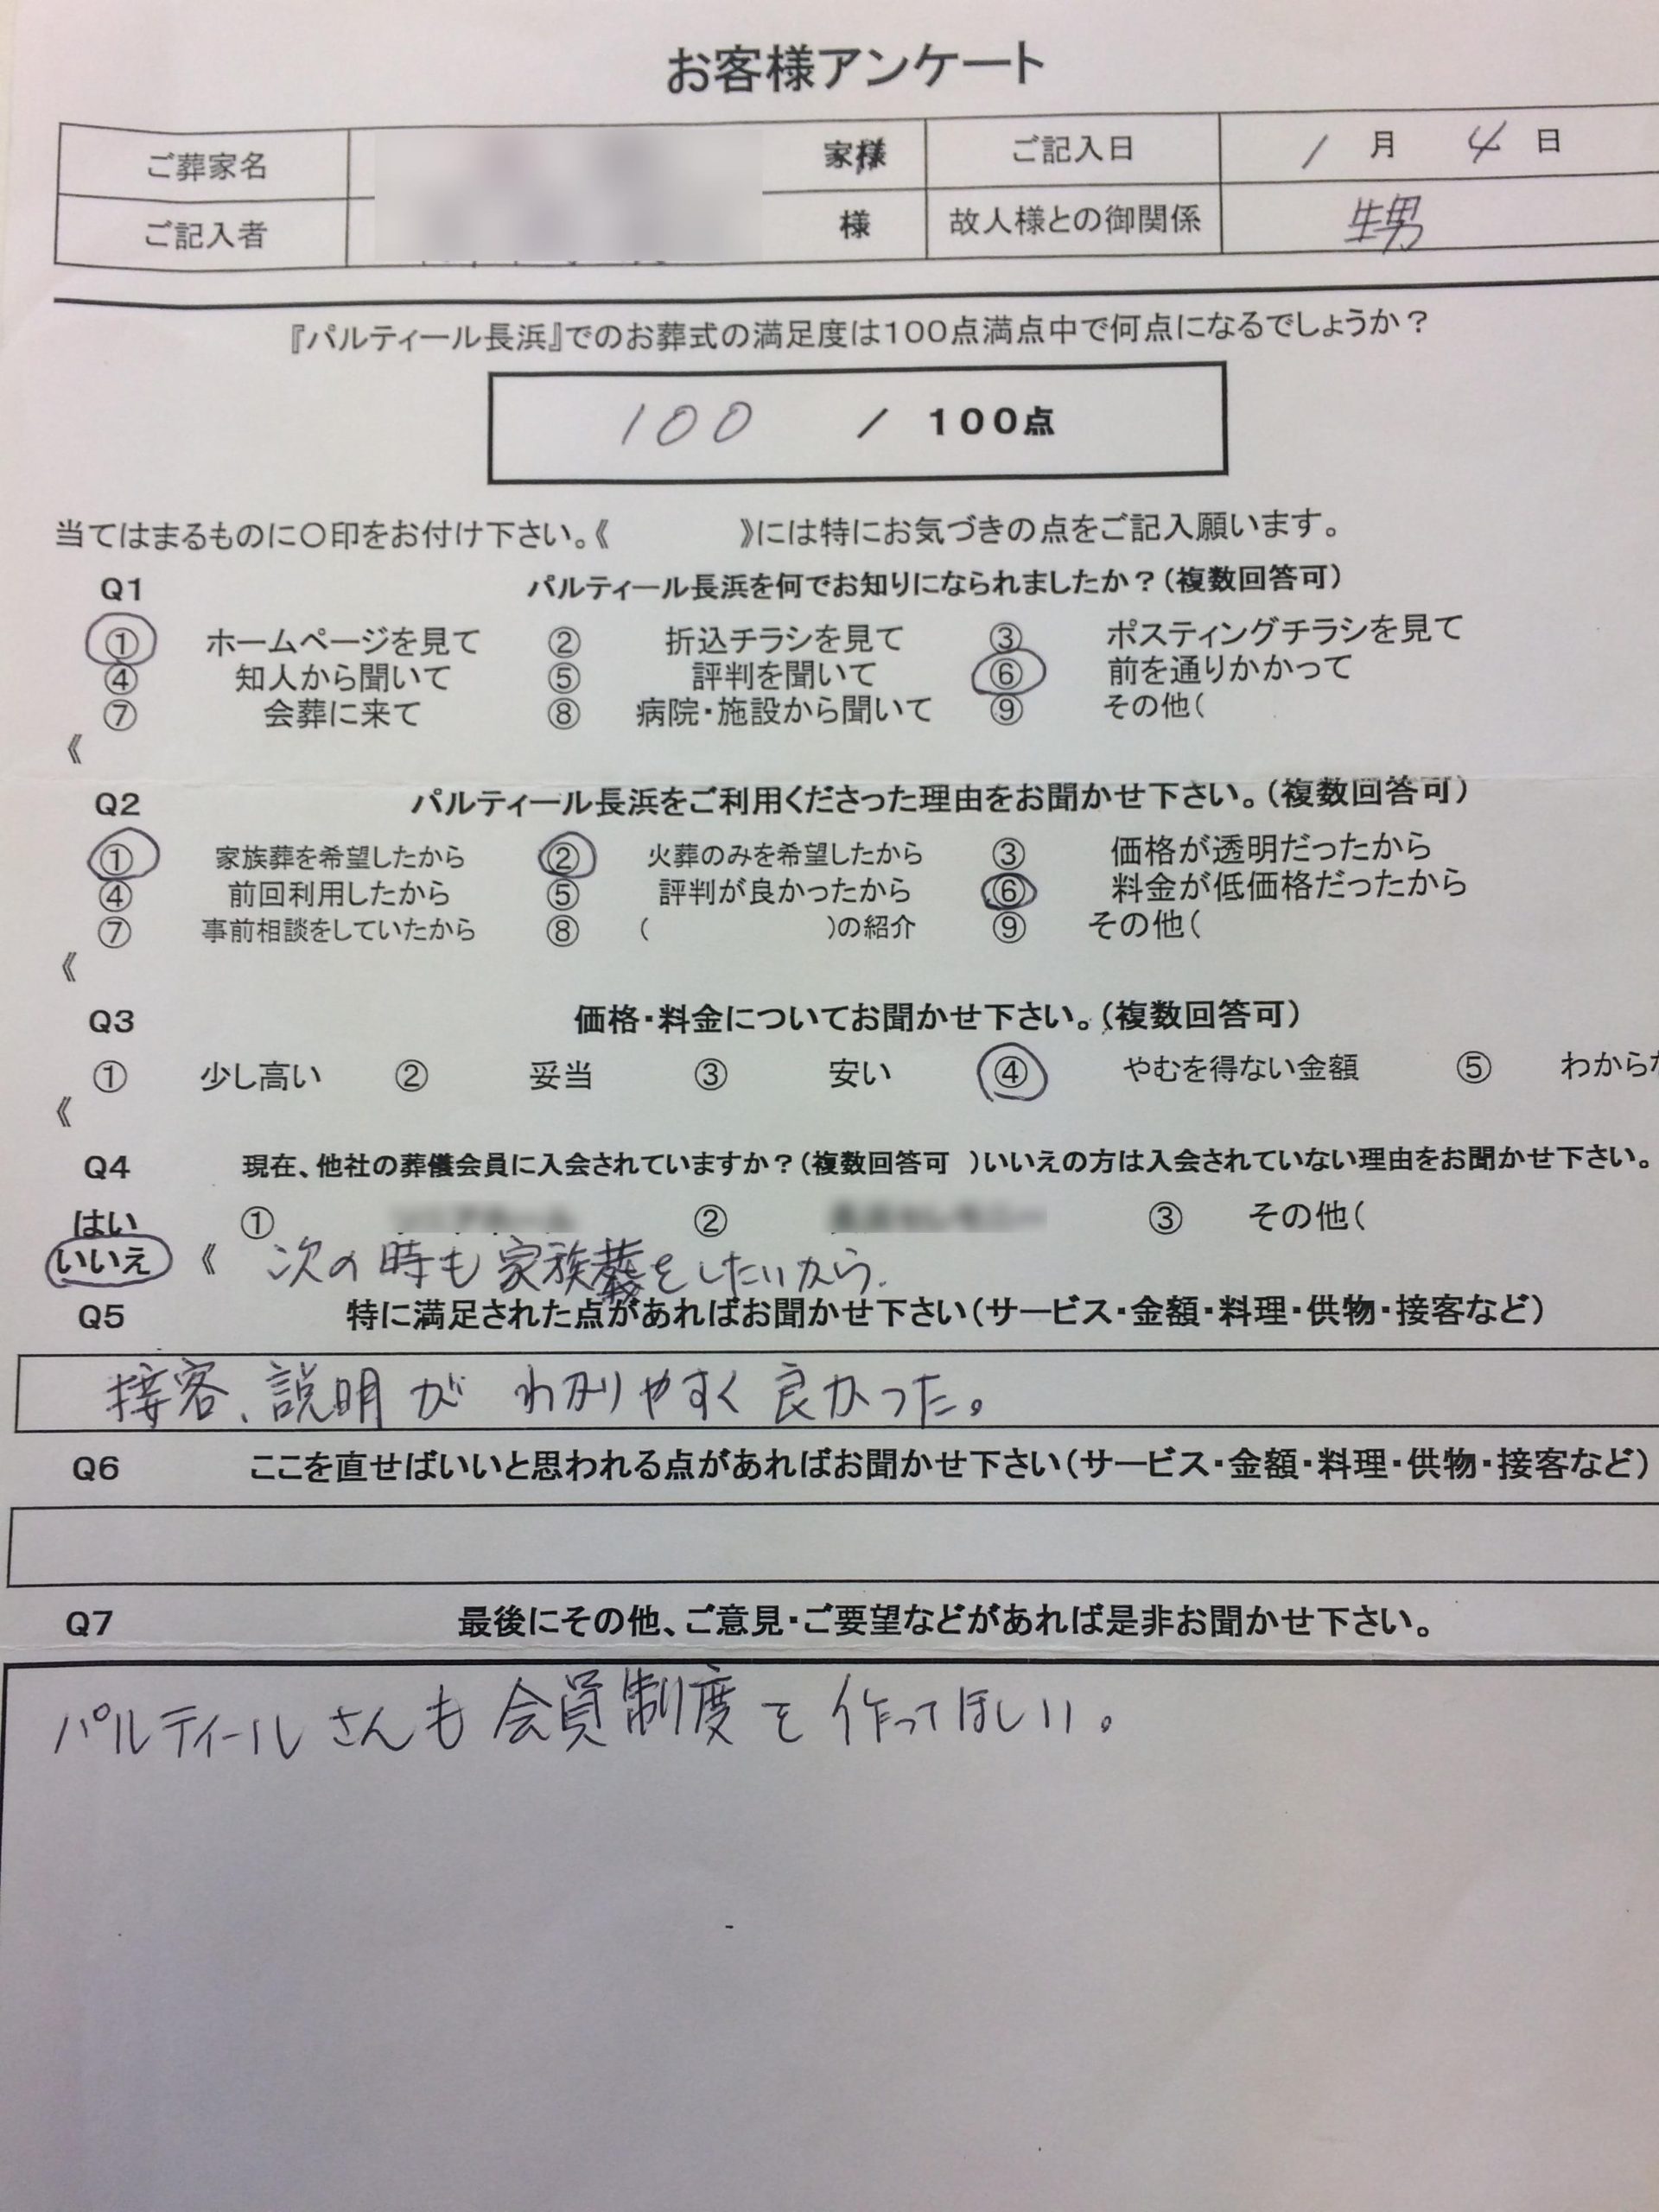 お客様アンケート
ご葬家名 家様 ご記入日 1月4日
ご記入者 様 故人様との御関係 甥
『パルティール長浜』でのお葬式の満足度は100点満点中で何点になるでしょうか？
100 / 100点
当てはまるものに〇印をお付け下さい。《 》には特にお気づきの点をご記入願います。
Q1 パルティール長浜を何でお知りになられましたか？（複数回答可）
① ホームページを見て ② 折込チラシを見て ③ ポスティングチラシを見て
④ 知人から聞いて ⑤ 評判を聞いて ⑥ 前を通りかかって
⑦ 会葬に来て ⑧ 病院・施設から聞いて ⑨ その他（
《
Q2 パルティール長浜をご利用くださった理由をお聞かせ下さい。（複数回答可）
① 家族葬を希望したから ② 火葬のみを希望したから ③ 価格が透明だったから
④ 前回利用したから ⑤ 評判が良かったから ⑥ 料金が低価格だったから
⑦ 事前相談をしていたから ⑧ （ ）の紹介 ⑨ その他（
《
Q3 価格・料金についてお聞かせ下さい。（複数回答可）
① 少し高い ② 妥当 ③ 安い ④ やむを得ない金額 ⑤ わから
《
Q4 現在、他社の葬儀会員に入会されていますか？（複数回答可 ）いいえの方は入会されていない理由をお聞かせ下さい。
はい ① ② ③ その他（
いいえ 《 次の時も家族葬をしたいから.
Q5 特に満足された点があればお聞かせ下さい（サービス・金額・料理・供物・接客など）
接客、説明がわかりやすく良かった。
Q6 ここを直せばいいと思われる点があればお聞かせ下さい（サービス・金額・料理・供物・接客など）
Q7 最後にその他、ご意見・ご要望などがあれば是非お聞かせ下さい。
パルティールさんも会員制度を作ってほしい。